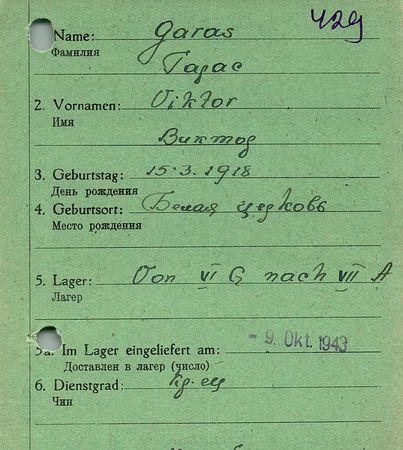 429
Name: Garas
Фамилия
Гарас
2. Vornamen: Viktor
Имя
Виктор
3. Geburtstag: 15.3.1918
День рождения
4. Geburtsort: Белая церковь
Место рождения
5. Lager: Von VI G nach VII A
Лагер
5a. Im Lager eingeliefert am: - 9. Okt. 1943
Доставлен в лагер (число)
6. Dienstgrad:
Чин